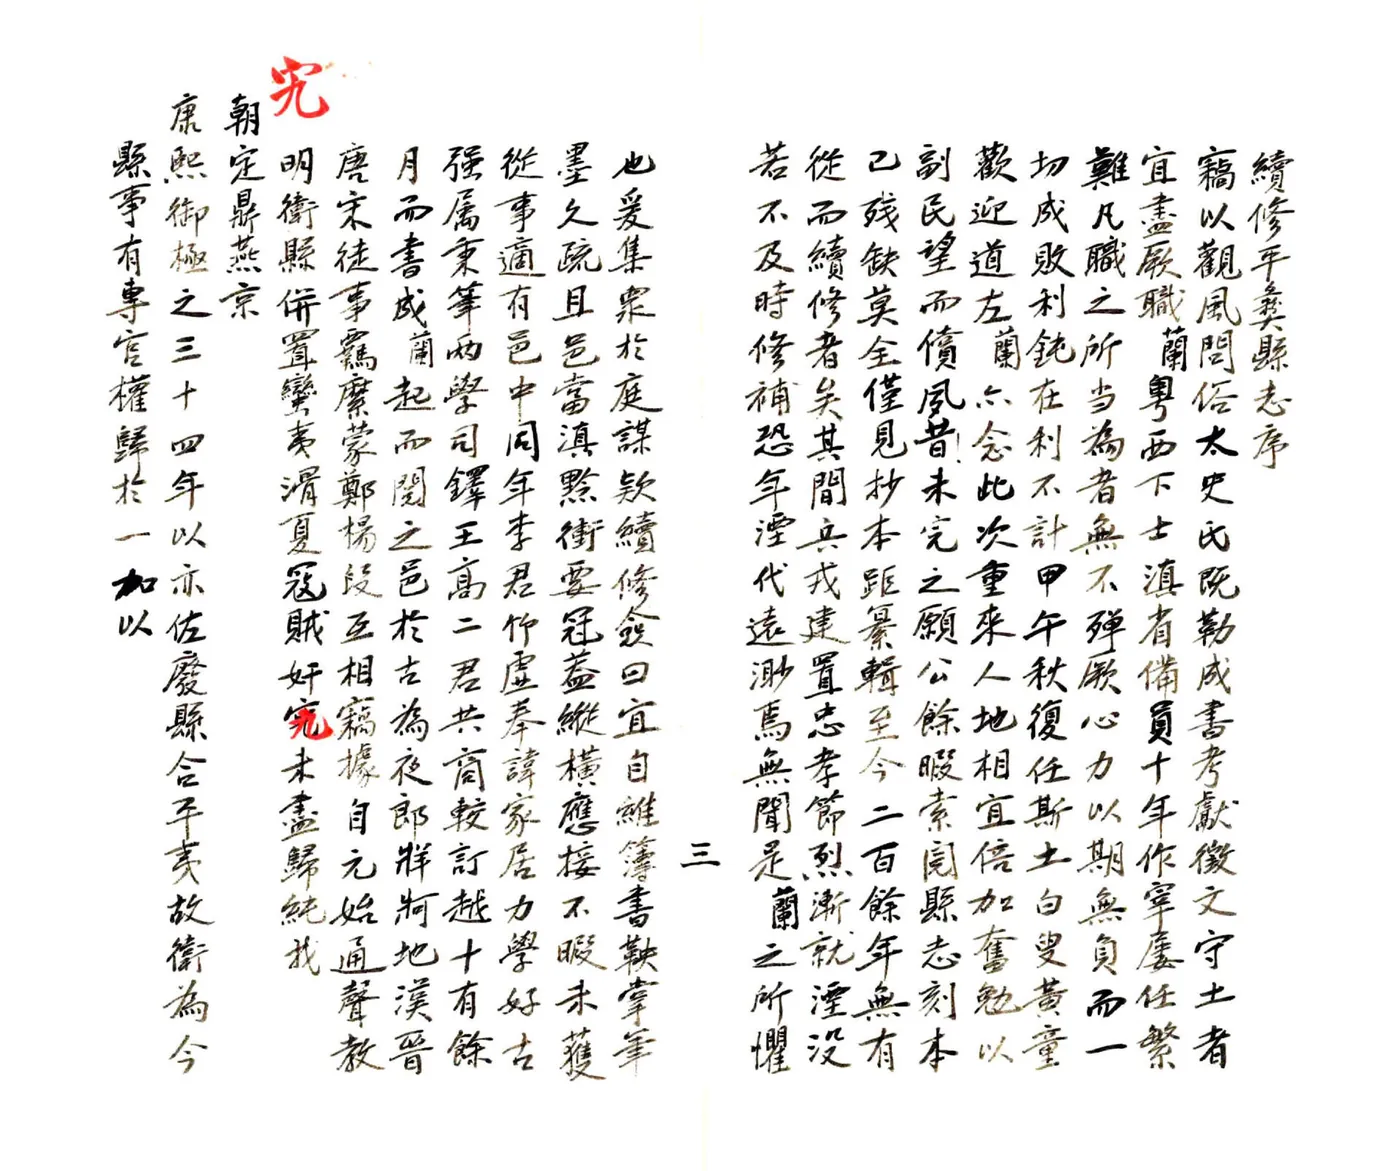 續修平彝縣志序
竊以觀風問俗太史氏既勒成書考獻徵文守土者
宜盡厥職蘭粵西下士滇省備員十年作宰屢任繁
難凡職之所当為者無不殫厥心力以期無負而一
切成敗利鈍在利不計甲午秋復任斯土白叟黃童
歡迎道左蘭亦念此次重來人地相宜倍加奮勉以
副民望而償夙昔未完之願公餘暇索閱縣志刻本
已殘缺莫全僅見抄本距纂輯至今二百餘年無有
從而續修者矣其間兵戎建置忠孝節烈漸就湮没
若不及時修補恐年湮代遠渺焉無聞是蘭之所懼
三
也爰集眾於庭謀欵續修僉曰宜自維簿書鞅掌筆
墨久疏且邑當滇黔衝要冠蓋縱橫應接不暇未獲
從事適有邑中同年李君竹虛奉諱家居力學好古
强属秉筆两學司鐸王高二君共商較訂越十有餘
月而書成蘭起而閱之邑於古為夜郎牂牁地漢晉
唐宋徒事羈縻蒙鄭楊段互相竊據自元始通聲教
究
明衛縣併置蠻夷滑夏寇賊奸究未盡歸純我
朝定鼎燕京
康熙御極之三十四年以亦佐廢縣合平夷故衛為今
縣事有專官權歸於一加以